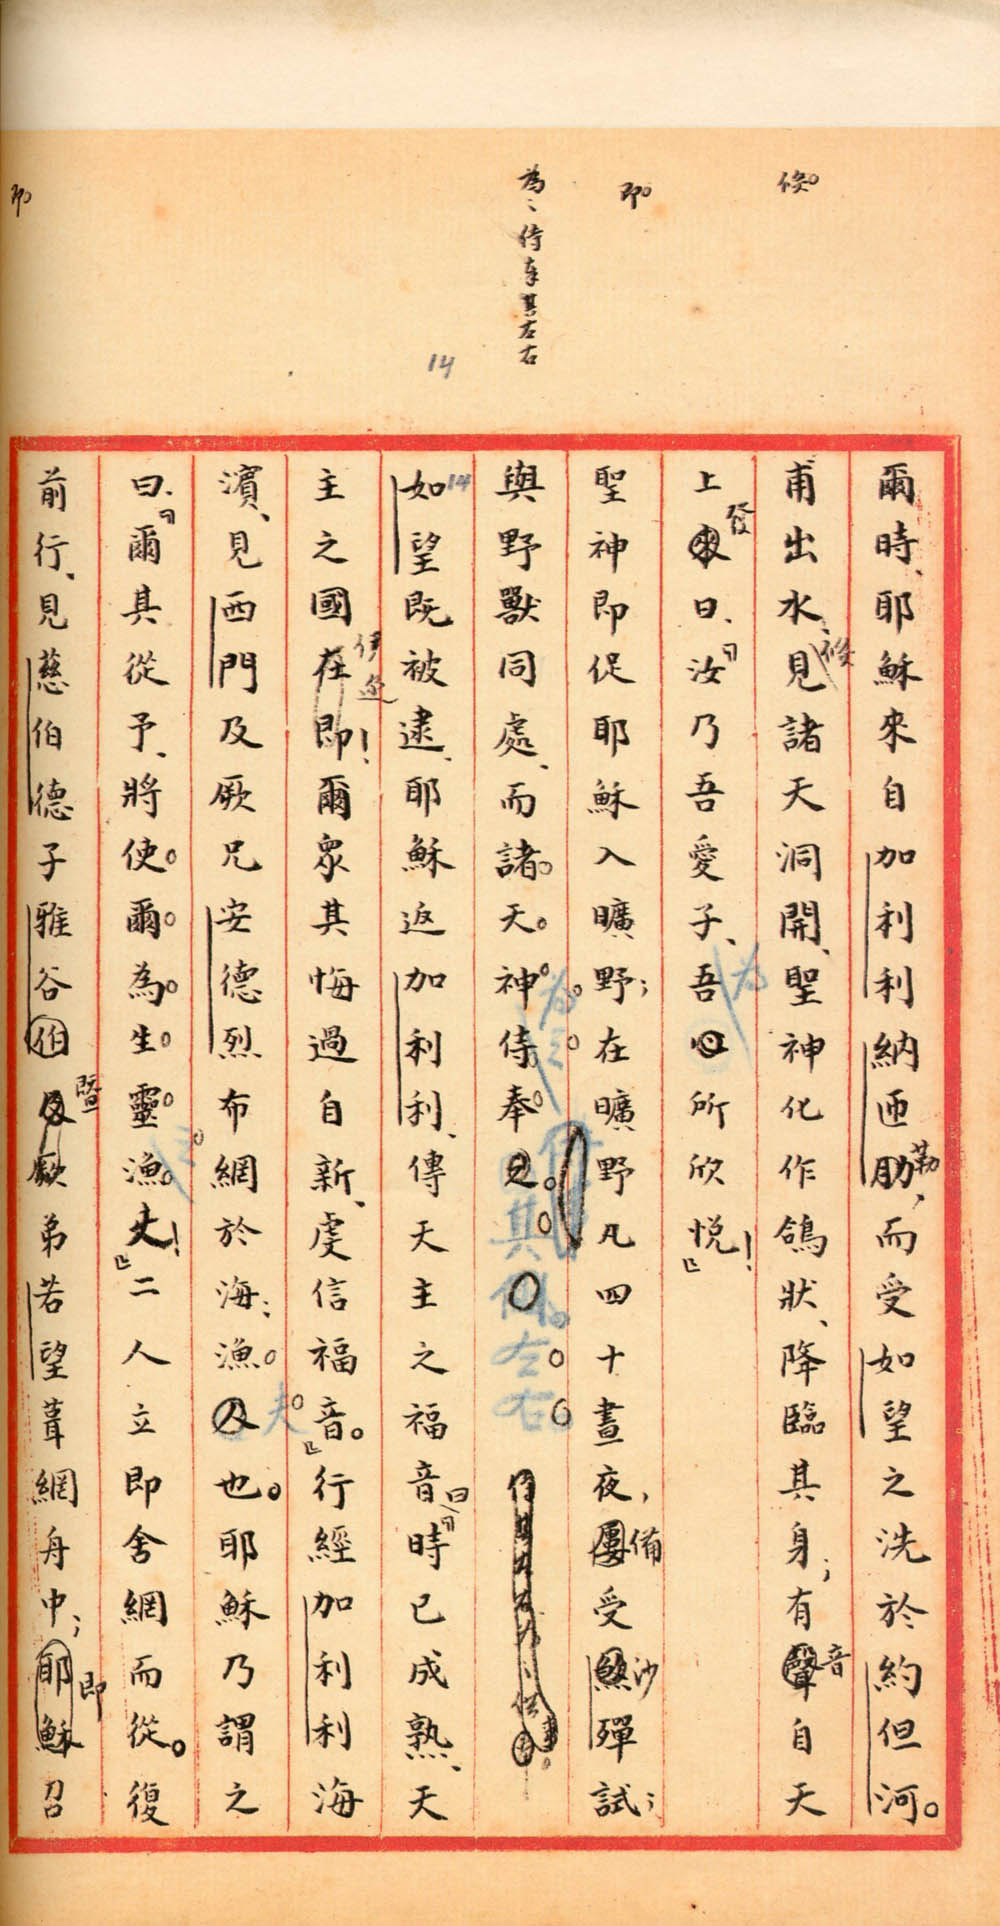 倏
即
為、侍奉其左右
即
14
爾時、耶穌來自加利利納匝肋勒，而受如望之洗於約但河。
甫出水、見倏諸天洞開、聖神化作鴿狀、降臨其身；有聲音自天
上來發曰、「汝乃吾愛子、吾心為所欣悅！」
聖神即促耶穌入曠野；在曠野凡四十晝夜，屢備受沙殫試；
與野獸同處、而諸天神侍奉為之侍其側左右
14
如望既被逮、耶穌返加利利、傳天主之福音曰「時已成熟、天
主之國在即伊邇！爾眾其悔過自新、虔信福音。」行經加利利海
濱、見西門及厥兄安德烈布網於海；漁人夫也。耶穌乃謂之
曰、「爾其從予、將使爾為生靈漁夫！」二人立即舍網而從。復
前行、見慈伯德子雅谷伯及暨厥弟若望葺網舟中；耶穌即召